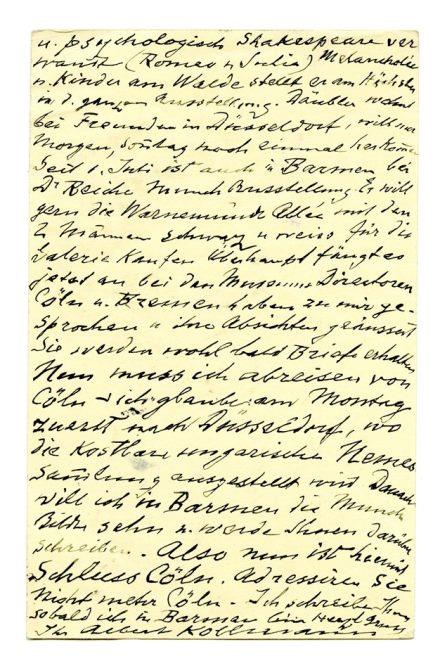 u. psychologisch Shakespeare ver
wandt (Romeo u Julia) Melancholie
u. Kinder am Walde stellt er am Höchsten
in d. ganzen Ausstellung. Däubler wohnt
bei Freunden in Düsseldorf, will nur
Morgen, Sontag noch einmal herkommen
Seit 1. Juli ist auch in Barmen bei
Dr Reiche Munch Ausstellung. Er will
gern die Warnemünde Allée mit den
2 Männern schwarz u weiss für die
Galerie Kaufen Überhaupt fängt es
jetzt an bei den Museums Directoren
Cöln u. Bremen haben zu mir ge-
sprochen u ihre Absichten geäussert
Sie werden wohl bald Briefe erhalten
Nun muss ich abreisen von
Cöln - ich glaube am Montag
zuerst nach Düsseldorf, wo
die Kostbare ungarische Nemes
Sammlung ausgestellt wird Danach
will ich in Barmen die Munch
Bilder sehn u. werde Ihnen darüber
schreiben. Also nun ist hiermit
Schluss Cöln. Adressiren Sie
nicht mehr Cöln - Ich schreibe Ihnen
sobald ich in Barmen bin Herzl Gruss
Ihr Albert Kollmann